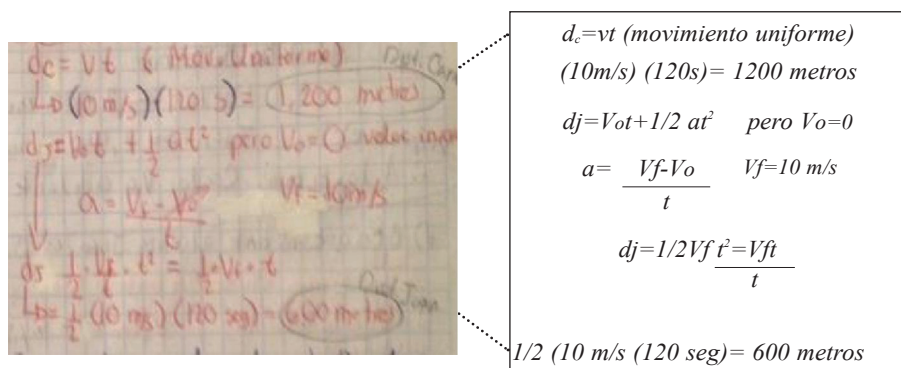 dc = Vt (Mov. Uniforme) Dist. Carla
(10 m/s)(120 s) = 1,200 metros
dJ = Vot + 1/2 at² pero Vo = 0 valor
a = Vf - Vo / t Vf = 10 m/s
dJ 1/2 · Vf/t · t² = 1/2 · Vf · t
= 1/2 (10 m/s)(120 seg) = 600 metros Dist. Juan
dc=vt (movimiento uniforme)
(10m/s) (120s)= 1200 metros
dj=Vot+1/2 at² pero Vo=0
a= Vf-Vo / t Vf=10 m/s
dj=1/2Vf t²=Vft / t
1/2 (10 m/s (120 seg)= 600 metros